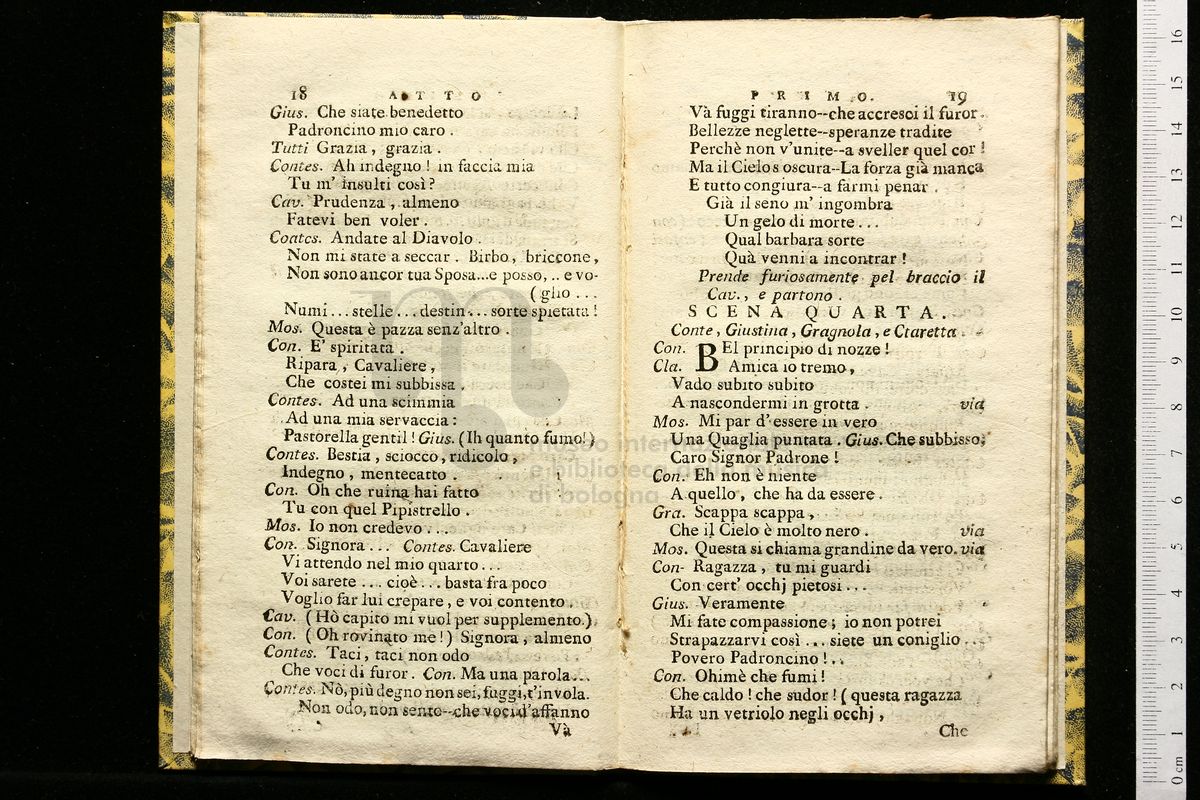 18 ATTO
Gius. Che siate benedetto
Padroncino mio caro .
Tutti Grazia , grazia .
Contes. Ah indegno ! in faccia mia
Tu m' insulti così ?
Cav. Prudenza , almeno
Fatevi ben voler .
Contes. Andate al Diavolo .
Non mi state a seccar . Birbo, briccone,
Non sono ancor tua Sposa...e posso, .. e vo-
( glio ...
Numi ... stelle ... destin ... sorte spietata !
Mos. Questa è pazza senz'altro .
Con. E' spiritata .
Ripara , Cavaliere ,
Che costei mi subbissa .
Contes. Ad una scimmia
Ad una mia servaccia :
Pastorella gentil ! Gius. (Ih quanto fumo!)
Contes. Bestia , sciocco, ridicolo ,
Indegno , mentecatto .
Con. Oh che ruina hai fatto
Tu con quel Pipistrello .
Mos. Io non credevo ....
Con. Signora ... Contes. Cavaliere
Vi attendo nel mio quarto ...
Voi sarete ... cioè ... basta fra poco
Voglio far lui crepare , e voi contento .
Cav. ( Hò capito mi vuol per supplemento.)
Con. ( Oh rovinato me ! ) Signora , almeno
Contes. Taci , taci non odo
Che voci di furor . Con. Ma una parola...
Contes. Nò, più degno non sei, fuggi, t'invola.
Non odo, non sento--che voci d'affanno
Và
PRIMO. 19
Và fuggi tiranno--che accresci il furor.
Bellezze neglette--speranze tradite
Perchè non v'unite--a sveller quel cor !
Ma il Cielo s oscura--La forza già manca
E tutto congiura--a farmi penar .
Già il seno m' ingombra
Un gelo di morte ...
Qual barbara sorte
Quà venni a incontrar !
Prende furiosamente pel braccio il
Cav. , e partono .
SCENA QUARTA.
Conte , Giustina , Gragnola , e Claretta .
Con. BEl principio di nozze !
Cla. Amica io tremo ,
Vado subito subito
A nascondermi in grotta . via
Mos. Mi par d' essere in vero
Una Quaglia puntata . Gius. Che subbisso,
Caro Signor Padrone !
Con. Eh non è niente
A quello , che ha da essere .
Gra. Scappa scappa ,
Che il Cielo è molto nero . via
Mos. Questa si chiama grandine da vero. via
Con- Ragazza , tu mi guardi
Con cert' occhj pietosi ...
Gius. Veramente
Mi fate compassione ; io non potrei
Strapazzarvi così ... siete un coniglio ...
Povero Padroncino ! ..
Con. Ohimè che fumi !
Che caldo ! che sudor ! ( questa ragazza
Ha un vetriolo negli occhj ,
Che